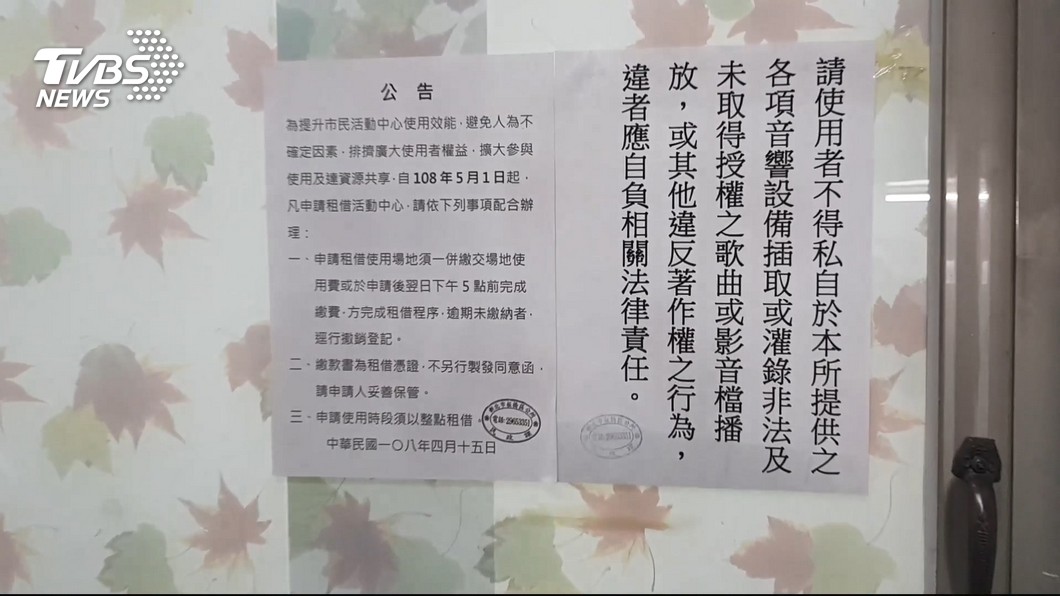 TVBS
NEWS
公告
為提升市民活動中心使用效能，避免人為不
確定因素，排擠廣大使用者權益，擴大參與
使用及達資源共享，自108年5月1日起，
凡申請租借活動中心，請依下列事項配合辦
理：
一、申請租借使用場地須一併繳交場地使
用費或於申請後翌日下午5點前完成
繳費，方完成租借程序，逾期未繳納者，
逕行撤銷登記。
二、繳款書為租借憑證，不另行製發同意函，
請申請人妥善保管。
三、申請使用時段須以整點租借。
電話:29653351
中華民國一〇八年四月十五日
請使用者不得私自於本所提供之
各項音響設備插取或灌錄非法及
未取得授權之歌曲或影音檔播
放，或其他違反著作權之行為，
違者應自負相關法律責任。